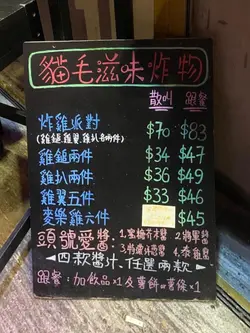 貓毛滋味炸物
散叫 跟餐
炸雞派對 $70 $83
(雞鎚、雞翼、雞扒各兩件)
雞鎚兩件 $34 $47
雞扒兩件 $36 $49
雞翼五件 $33 $46
麥樂雞六件 $45
頭號愛醬 1. 2.將軍醬
3. 4.泰雞醬
◀四款醬汁、任選兩款▶
跟餐:加飲品x1及薯餅or薯條x1